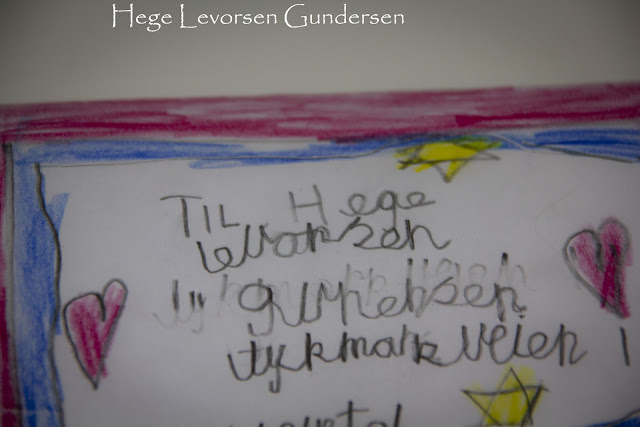 Hege Levorsen Gundersen
TIL Hege
levorsen
gunnersen
tykmark veien 1